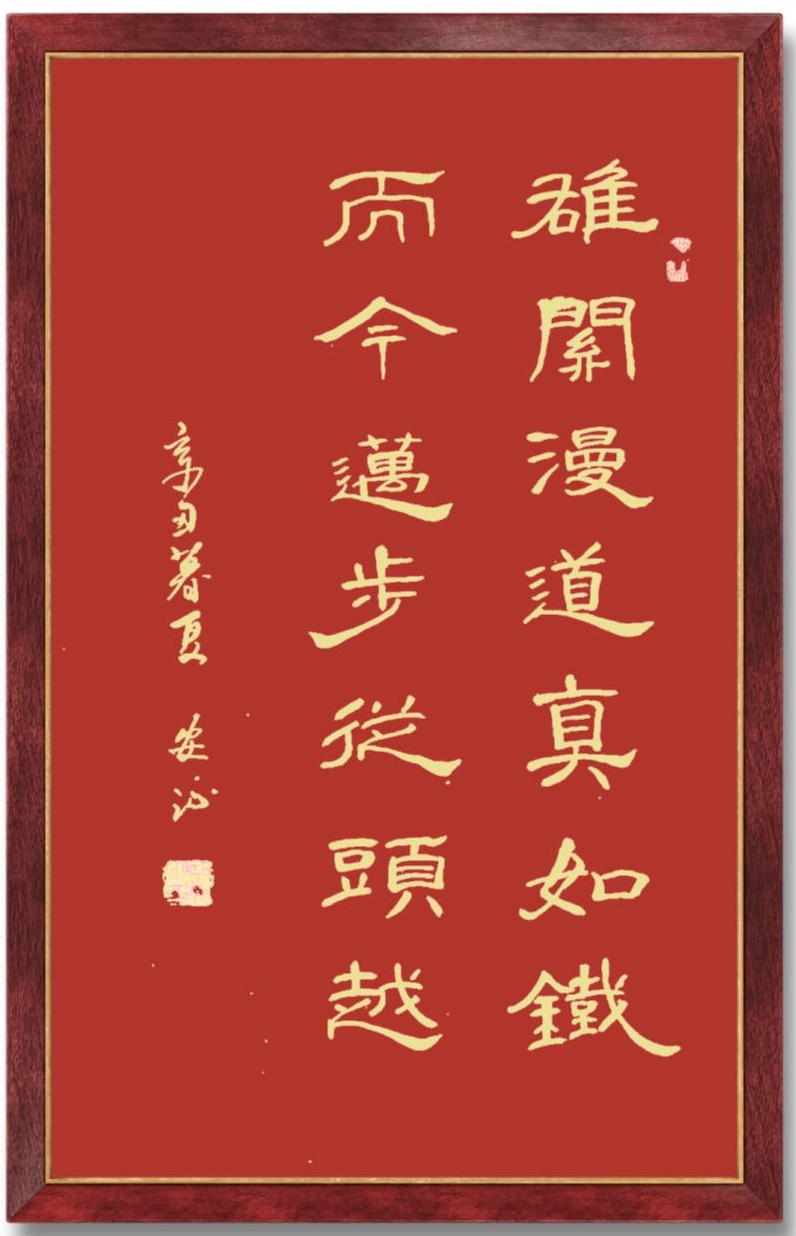 雄關漫道真如鐵
而今邁步從頭越
辛丑暮夏 安